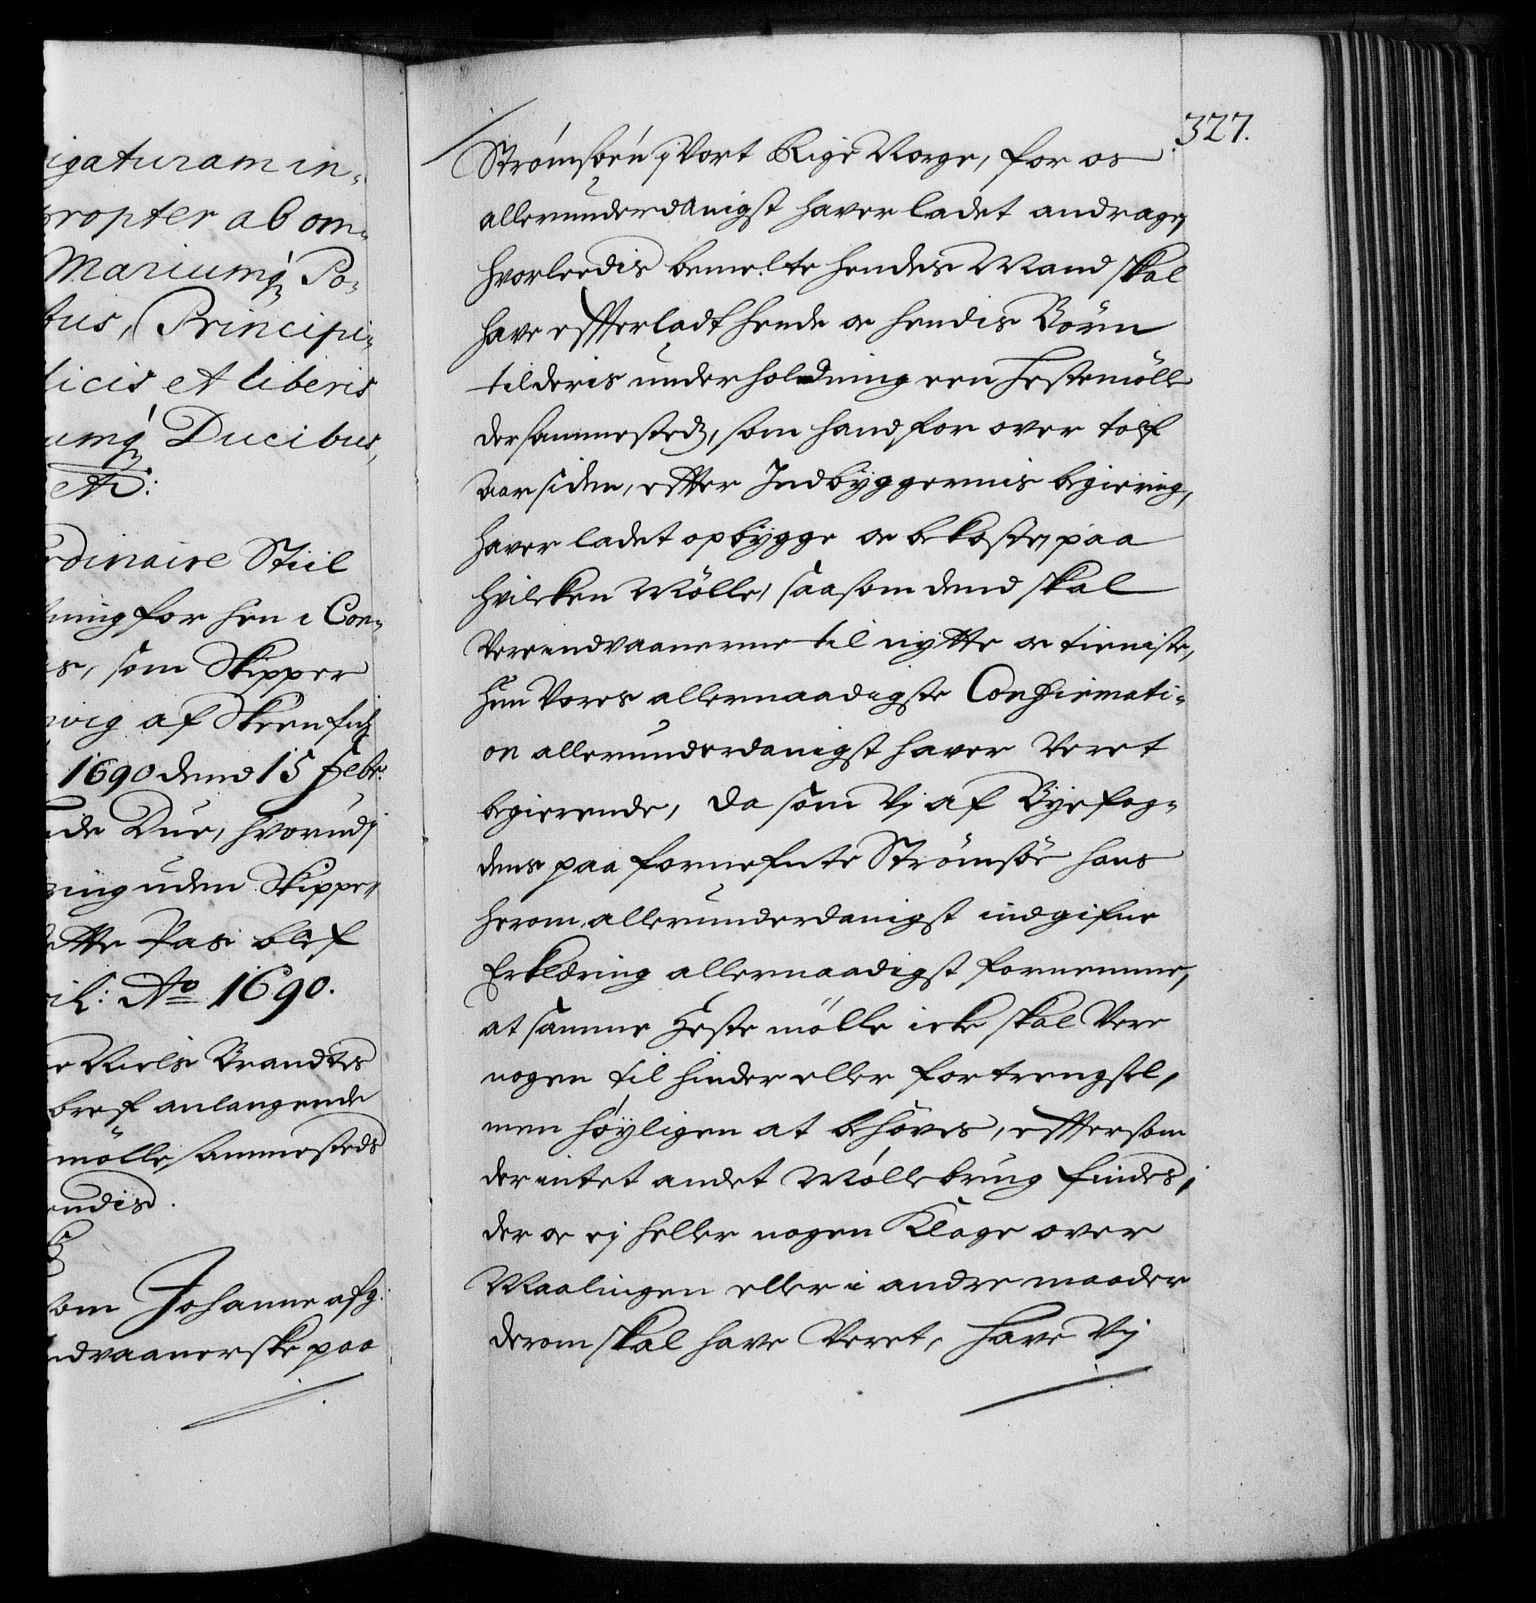 igaturam in-
propter ab om-
Mariumq₃ Po-
tus, Principi-
licis et liberis
umq₃ Ducibus,
etc:
rdinaire Stiil
ning for hen i Con-
es, som Skipper
vig af Skeen sig
1690 dend 15 Febr:
de Due, hvorudj
ring uden Skipper
dette Pas blef
il: Ao 1690.
e Niels Brandtes
bref anlangende
mölle sammesteds
endis.
som Johanne afg:
ndvaanerske paa
327.
Strömsöen j Vort Rige Norge, for os
allerunderdanigst haver ladet andrage,
hvorleedis bemelte hendes Mand skal
have effterladt hende oc hendis Börn
til deris underholdning een Hestemölle
dersammesteds, som hand for over tolf
aar siden, effter Indbyggernis begiering,
haver ladet opbÿgge oc bekoste, paa
hvilcken Mölle, saasom dend skal
Vere indvaanerne til nytte oc tieniste,
hun Vores allernaadigste Confirmati-
on allerunderdanigst haver Veret
begierende, Da som Vj af Byefog-
dens paa fornefnte Strömsöe hans
herom allerunderdanigst indgifne
Erklæring allernaadigst fornemme,
at samme Heste mölle icke skal Vere
nogen til hinder eller fortrengsel,
men höÿligen at behöves, effterson
der intet andet Möllebrug findes,
der oc ej heller nogen Klage over
Maalingen eller i andre maader
derom skal have Veret, Have Vj